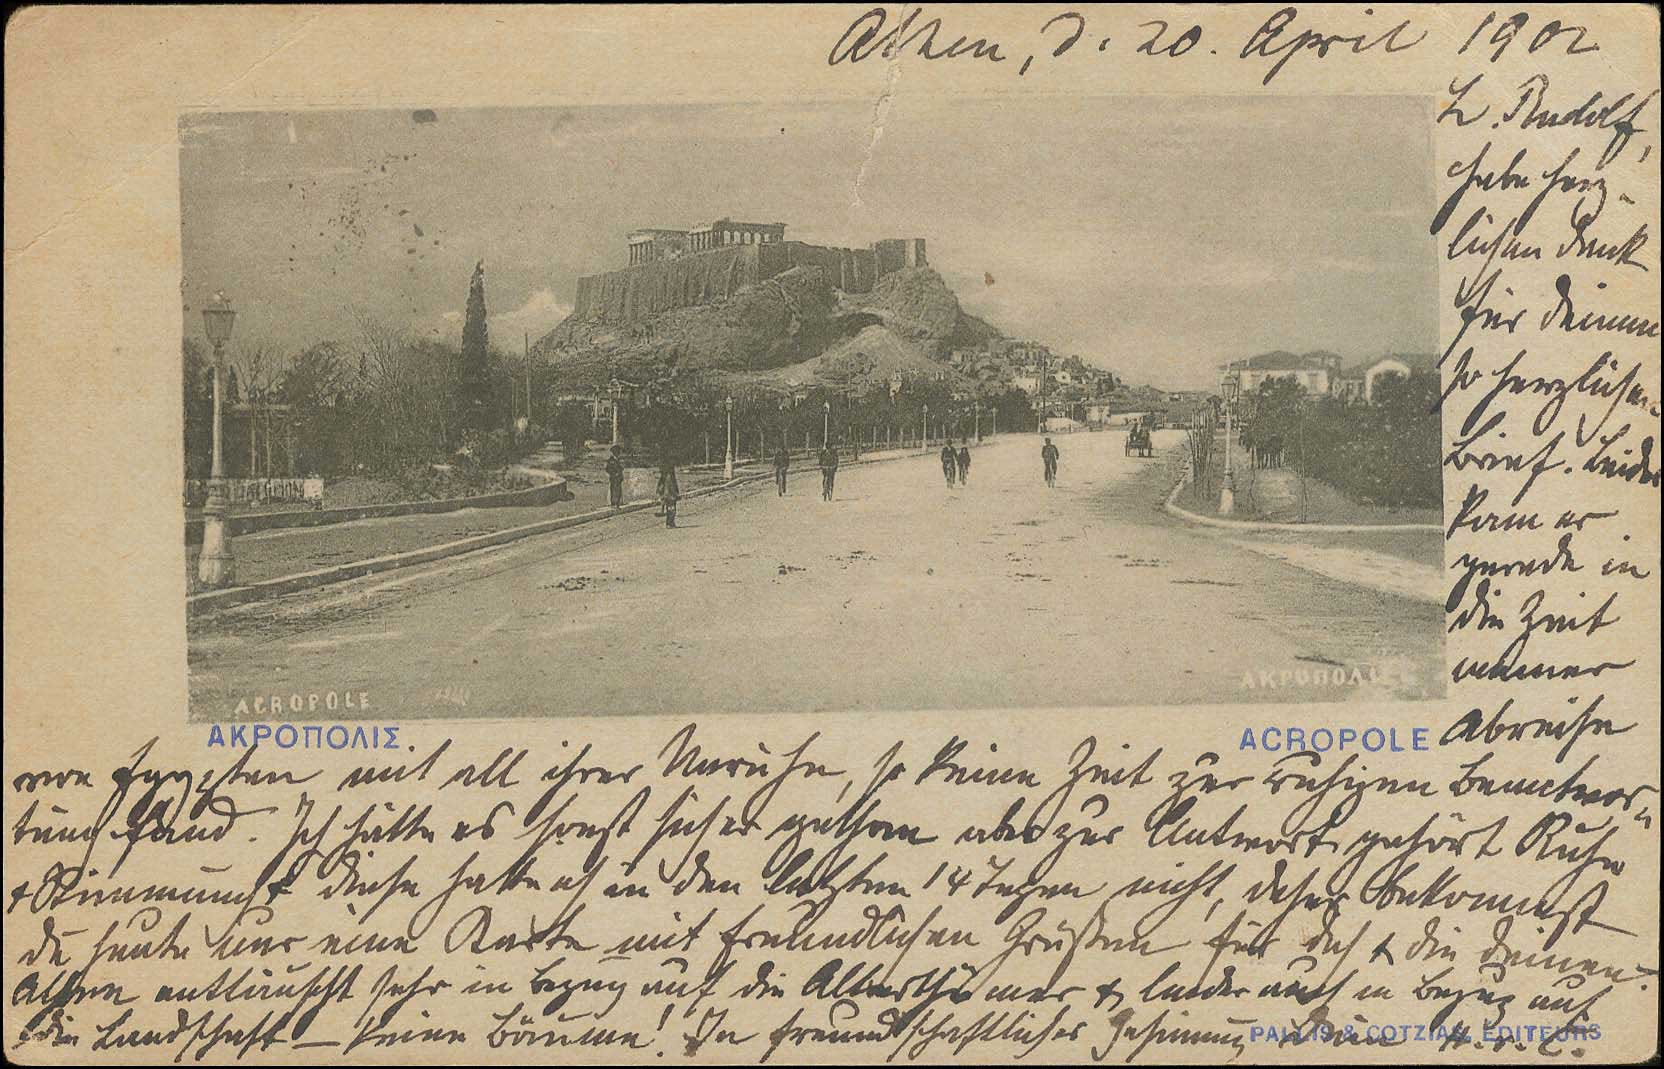 Athen, d. 20. April 1902
L. Rudolf,
habe herz-
lichen Dank
für Deinen
so herzlichen
Brief. Leider
kam er
gerade in
die Zeit
meiner
Abreise
von Egypten mit all ihrer Unruhe, so keine Zeit zur ruhigen Beantwor-
tung fand. Ich hätte es sonst sicher gethan aber zur Antwort gehört Ruhe
+ Stimmung & diese hatte ich in den letzten 14 Tagen nicht, daher bekommst
du heute nur eine Karte mit freundlichen Grüßen für dich & die deinen.
Athen enttäuscht sehr in Bezug auf die Alterthümer & leider auch in Bezug auf
die Landschaft — keine Bäume! In freundschaftlicher Gesinnung Dein
ACROPOLE
ΑΚΡΟΠΟΛΙΣ
ΑΚΡΟΠΟΛΙΣ
ACROPOLE
PALLIS & COTZIAS, EDITEURS